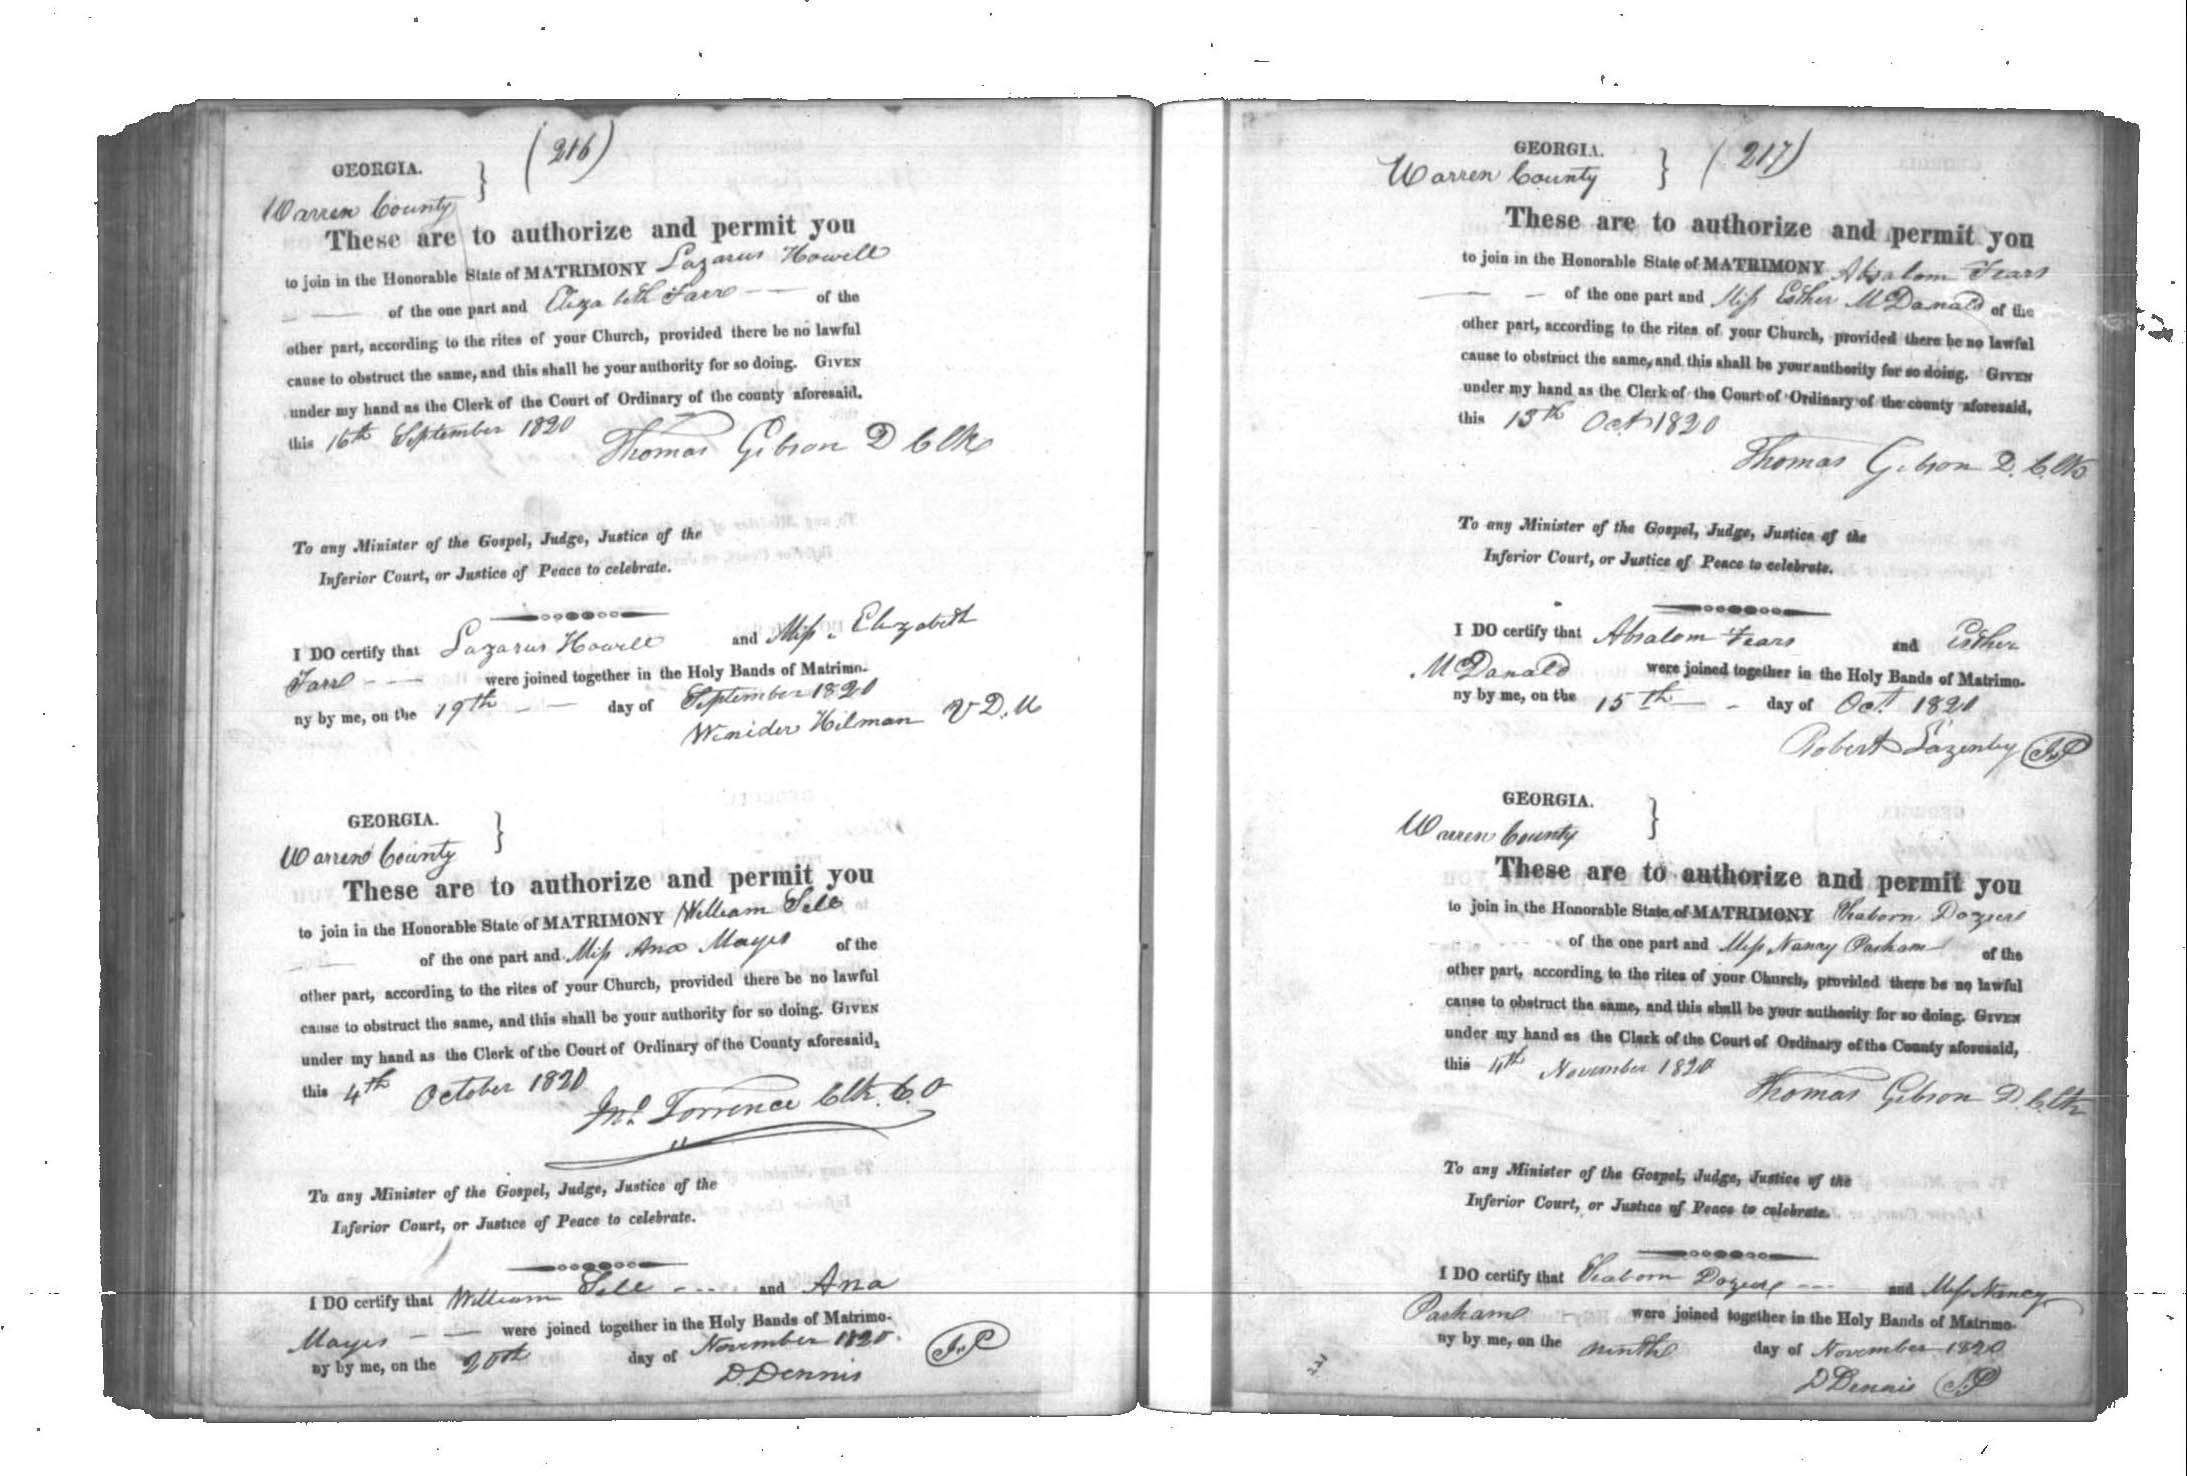 (216)
GEORGIA. }
Warren County
These are to authorize and permit you
to join in the Honorable State of MATRIMONY Lazarus Howell
of the one part and Elizabeth Farr of the
other part, according to the rites of your Church, provided there be no lawful
cause to obstruct the same, and this shall be your authority for so doing. GIVEN
under my hand as the Clerk of the Court of Ordinary of the county aforesaid.
this 16th September 1820
Thomas Gibson D Clk
To any Minister of the Gospel, Judge, Justice of the
Inferior Court, or Justice of Peace to celebrate.
I DO certify that Lazarus Howell and Miss Elizabeth
Farr were joined together in the Holy Bands of Matrimo-
ny by me, on the 19th day of September 1820
Winider Hilman V.D.M
GEORGIA. }
Warren County
These are to authorize and permit you
to join in the Honorable State of MATRIMONY William Sell
of the one part and Miss Ana Mayes of the
other part, according to the rites of your Church, provided there be no lawful
cause to obstruct the same, and this shall be your authority for so doing. GIVEN
under my hand as the Clerk of the Court of Ordinary of the County aforesaid,
this 4th October 1820
Jno. Torrence Clk. C. O
To any Minister of the Gospel, Judge, Justice of the
Inferior Court, or Justice of Peace to celebrate.
I DO certify that William Sell and Ana
Mayes were joined together in the Holy Bands of Matrimo-
ny by me, on the 20th day of November 1820.
D. Dennis J.P
GEORGIA. } (217)
Warren County
These are to authorize and permit you
to join in the Honorable State of MATRIMONY Absalom Fears
of the one part and Miss Esther McDanald of the
other part, according to the rites of your Church, provided there be no lawful
cause to obstruct the same, and this shall be your authority for so doing. GIVEN
under my hand as the Clerk of the Court of Ordinary of the county aforesaid,
this 13th Oct 1820
Thomas Gibson D. Clk
To any Minister of the Gospel, Judge, Justice of the
Inferior Court, or Justice of Peace to celebrate.
I DO certify that Absalom Fears and Esther
McDanald were joined together in the Holy Bands of Matrimo-
ny by me, on the 15th day of Oct. 1820
Robert Lazenby J.P
GEORGIA. }
Warren County
These are to authorize and permit you
to join in the Honorable State of MATRIMONY Seaborn Doziere
of the one part and Miss Nancy Parham of the
other part, according to the rites of your Church, provided there be no lawful
cause to obstruct the same, and this shall be your authority for so doing. GIVEN
under my hand as the Clerk of the Court of Ordinary of the County aforesaid,
this 4th November 1820
Thomas Gibson D. Clk
To any Minister of the Gospel, Judge, Justice of the
Inferior Court, or Justice of Peace to celebrate.
I DO certify that Seaborn Doziere and Miss Nancy
Parham were joined together in the Holy Bands of Matrimo-
ny by me, on the ninth day of November 1820
D Dennis J.P